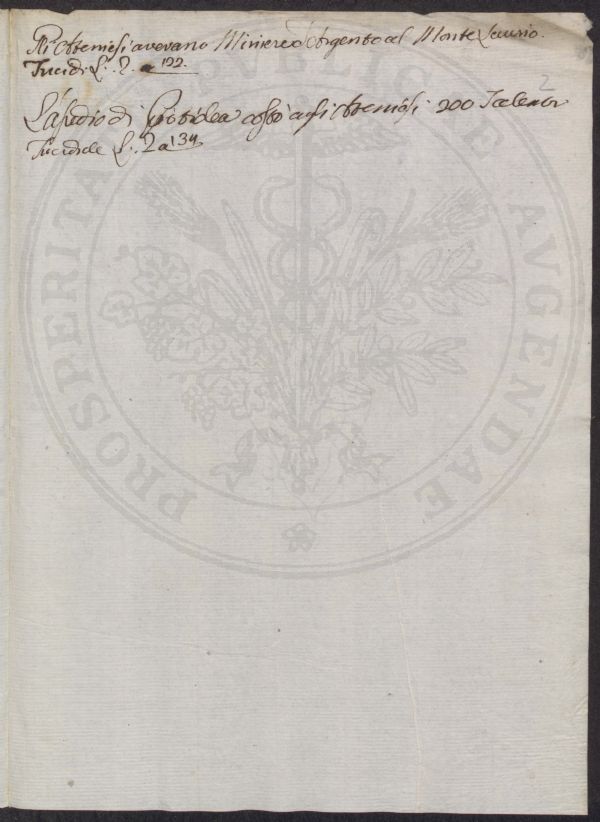 Gli Ateniesi avevano Miniere d'Argento al Monte Laurio.
Tucidi. L. 2. a 122.
2
L'asedio di Potidea costò agli Ateniesi 200 Talenti
Tucidide L. 2 a 134
PUBLICAE AVGENDAE PROSPERITA